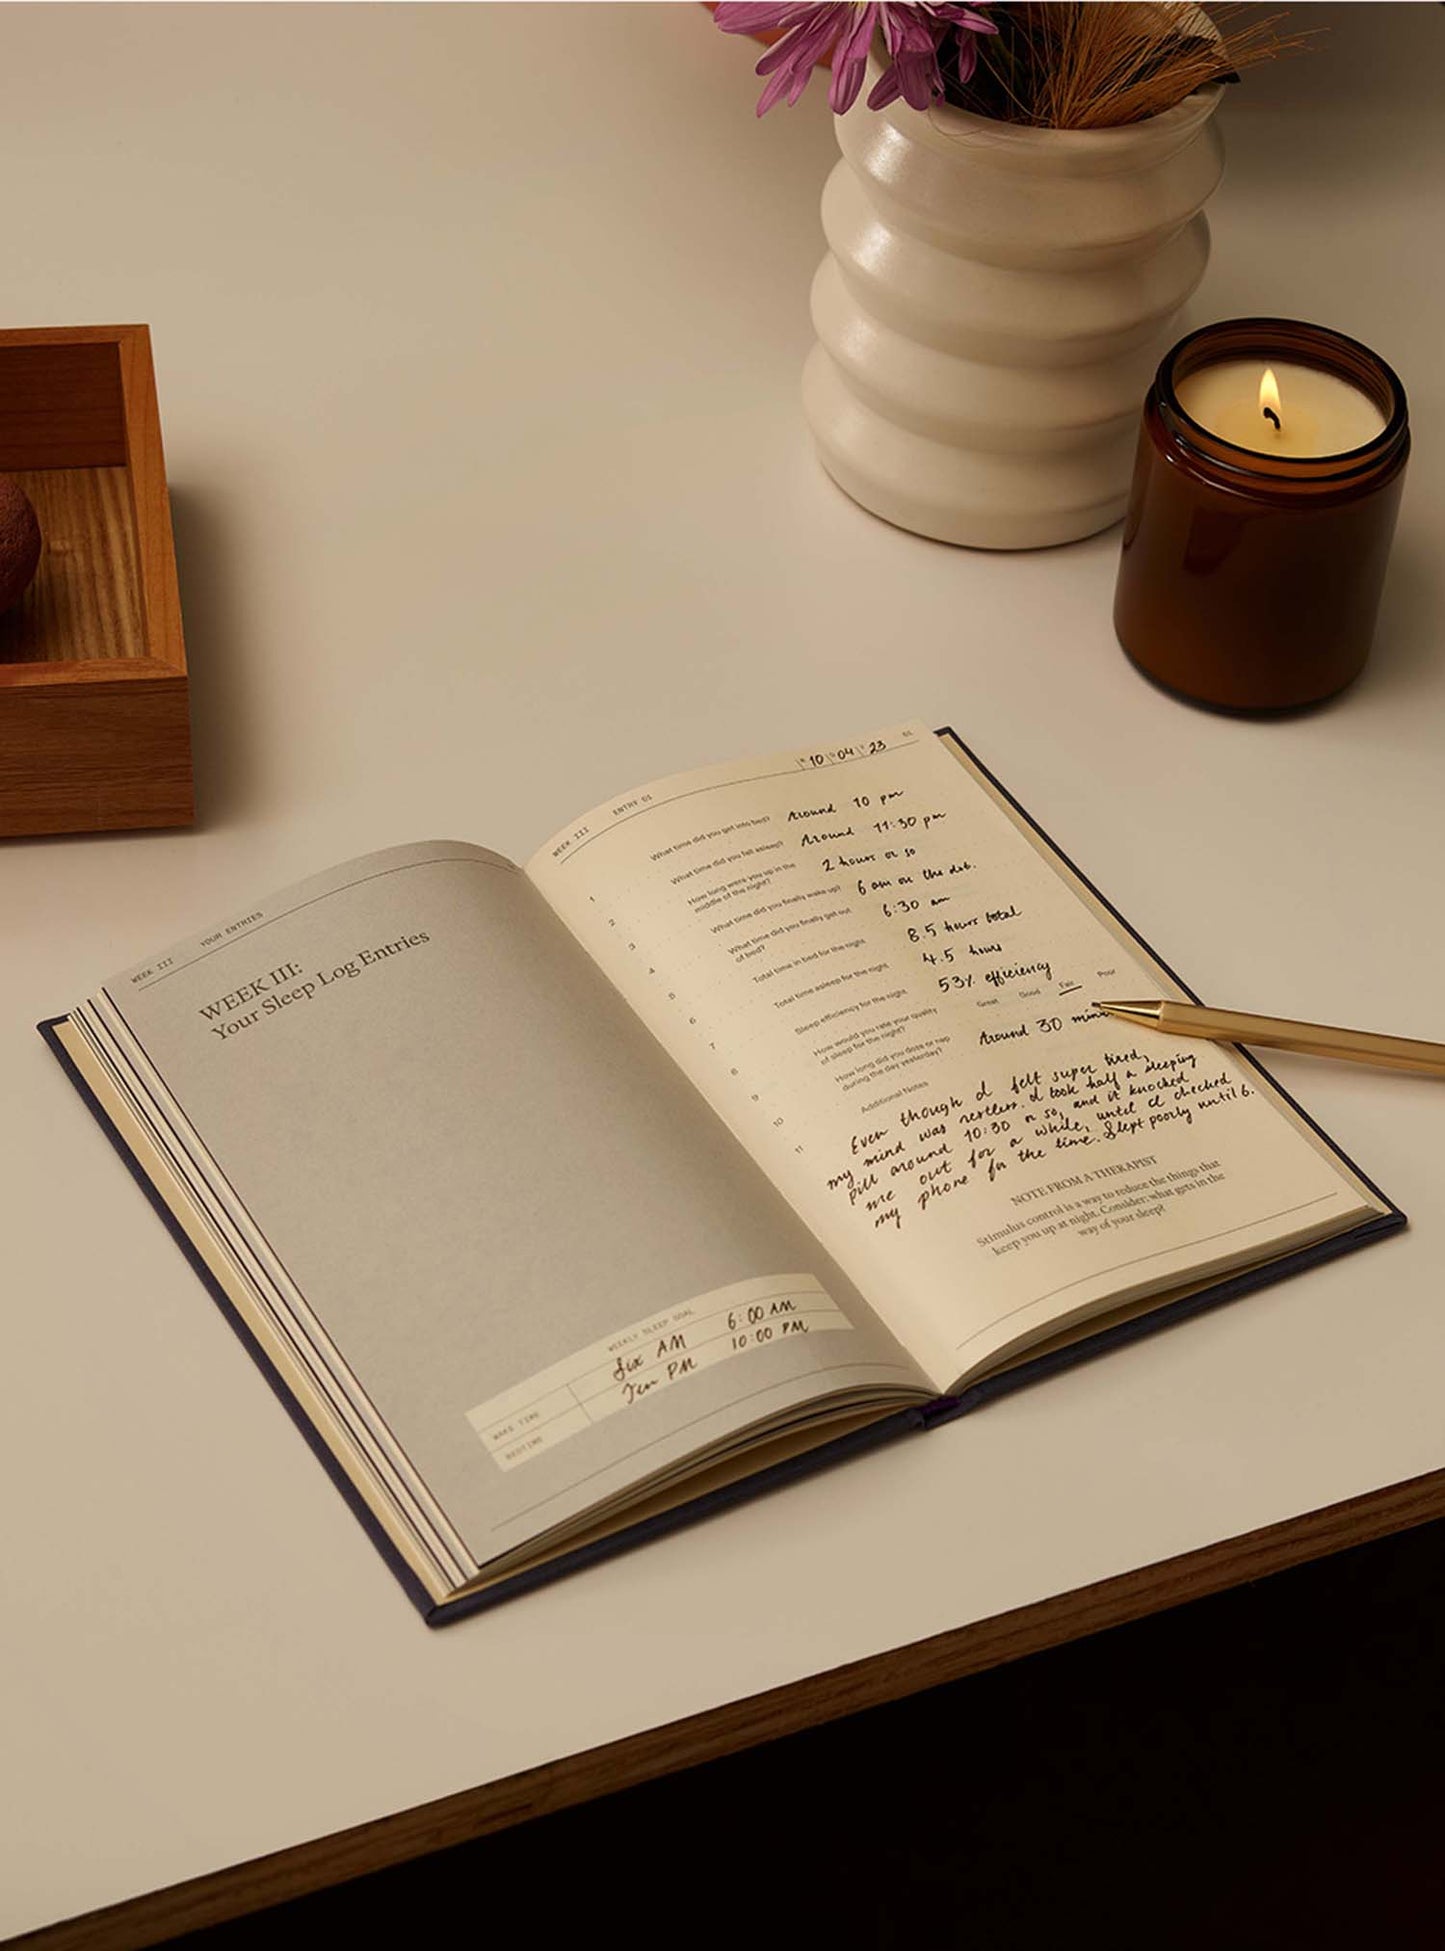 WEEK III YOUR ENTRIES
WEEK III:
Your Sleep Log Entries
WEEKLY SLEEP GOAL
WAKE TIME Six AM 6:00 AM
BEDTIME Ten PM 10:00 PM
WEEK III ENTRY 01 10 04 23 01
1 What time did you get into bed? Around 10 pm
2 What time did you fall asleep? Around 11:30 pm
3 How long were you up in the
middle of the night? 2 hours or so
4 What time did you finally wake up? 6 am on the dot.
5 What time did you finally get out
of bed? 6:30 am
6 Total time in bed for the night 8.5 hours total
7 Total time asleep for the night 4.5 hours
8 Sleep efficiency for the night 53% efficiency
9 How would you rate your quality
of sleep for the night? Great Good Fair Poor
10 How long did you doze or nap
during the day yesterday? Around 30 mins
11 Additional Notes
Even though I felt super tired,
my mind was restless. I took half a sleeping
pill around 10:30 or so, and it knocked
me out for a while, until I checked
my phone for the time. Slept poorly until 6.
NOTE FROM A THERAPIST
Stimulus control is a way to reduce the things that
keep you up at night. Consider: what gets in the
way of your sleep?